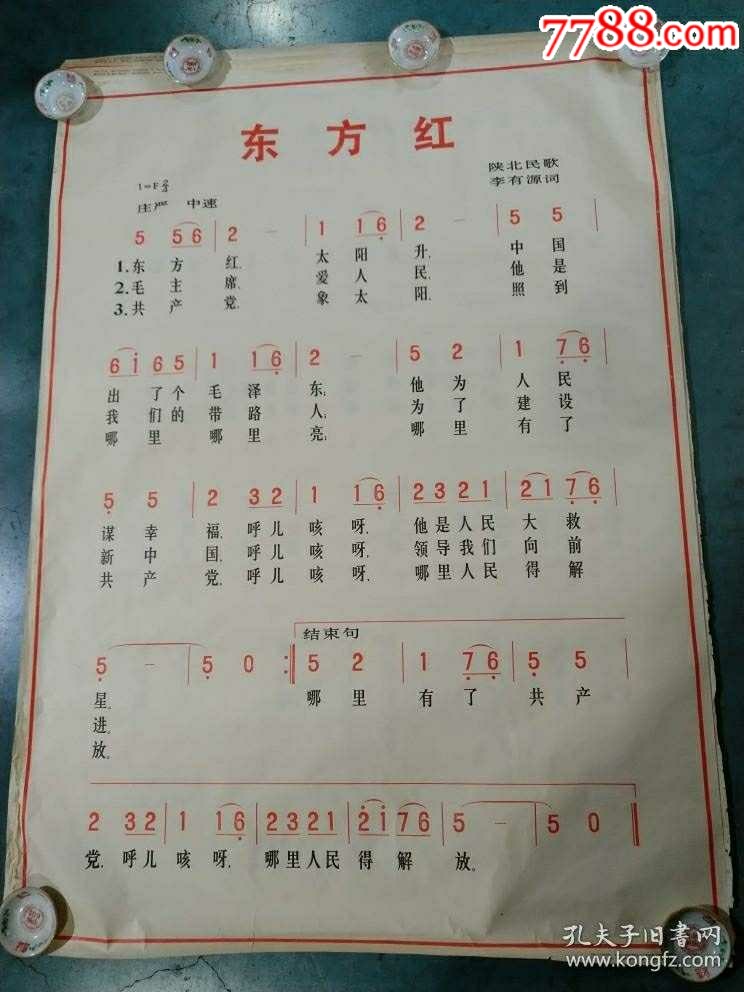 7788.com
东方红
陕北民歌
李有源词
1=F 2/4
庄严 中速
5 56 | 2 - | 1 16 | 2 - | 5 5 |
1.东方红, 太阳升, 中国
2.毛主席, 爱人民, 他是
3.共产党, 象太阳, 照到
61 65 | 1 16 | 2 - | 5 2 | 1 76 |
出了个毛泽东; 他为人民
我们的带路人; 为了建设
哪里哪里亮; 哪里有了
5 5 | 2 32 | 1 16 | 2321 | 2176 |
谋幸福,呼儿咳呀, 他是人民大救
新中国,呼儿咳呀, 领导我们向前
共产党,呼儿咳呀, 哪里人民得解
结束句
5 - | 5 0 :‖ 5 2 | 1 76 | 5 5 |
星。 哪里有了共产
进。
放。
2 32 | 1 16 | 2321 | 2176 | 5 - | 5 0 ‖
党,呼儿咳呀, 哪里人民得解放。
孔夫子旧书网
kongfz.com